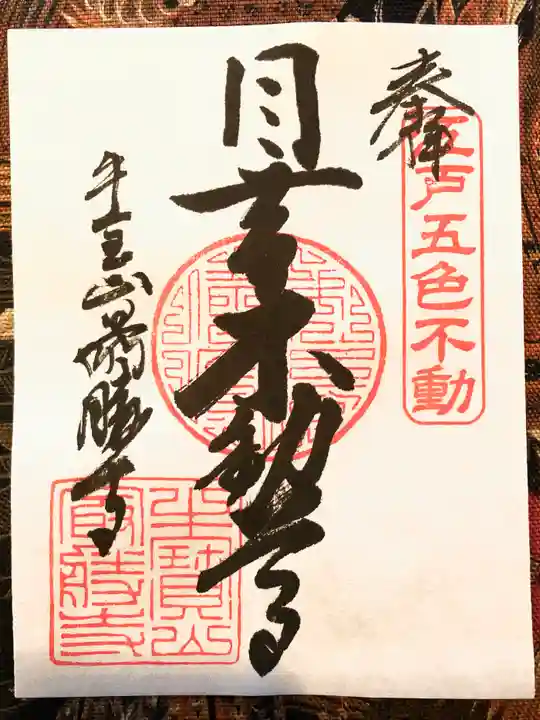 奉拝
江戸五色不動
目黄不動尊
牛宝山最勝寺
牛寶山
最勝寺